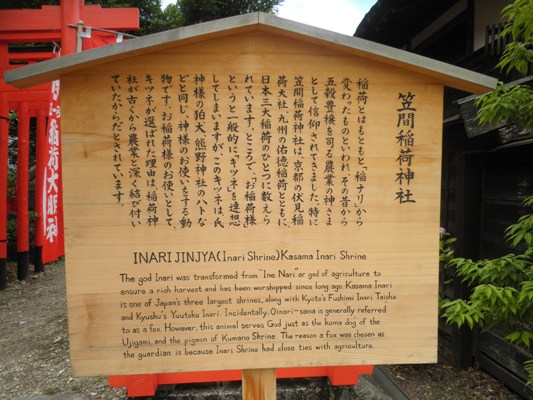 笠間稲荷神社
稲荷とはもともと、稲ナリ」から
変わったものといわれ、その昔から
五穀豊穣を司る農業の神さま
として信仰されてきました。特に
笠間稲荷神社は、京都の伏見稲
荷大社、九州の佑徳稲荷とともに、
日本三大稲荷のひとつに数えら
れています。ところで、「お稲荷様」
というと一般的に「キツネ」を連想
してしまいますが、このキツネは、氏
神様の狛犬、熊野神社のハトな
どと同じ、神様のお使いをする動
物です。お稲荷様のお使いとして、
キツネが選ばれた理由は、稲荷神
社が古くから農業と深く結び付い
ていたからだとされています。
INARI JINJYA(Inari Shrine) Kasama Inari Shrine
The god Inari was transformed from "Ine Nari" or god of agriculture to
ensure a rich harvest and has been worshipped since long ago. Kasama Inari
is one of Japan's three largest shrines, along with Kyoto's Fushimi Inari Taisha
and Kyushu's Yuutoku Inari. Incidentally, Oinari-sama is generally referred
to as a fox. However, this animal serves God just as the koma dog of the
Ujigami, and the pigeon of Kumano Shrine. The reason a fox was chosen as
the guardian is because Inari Shrine had close ties with agriculture.
稲荷大明神